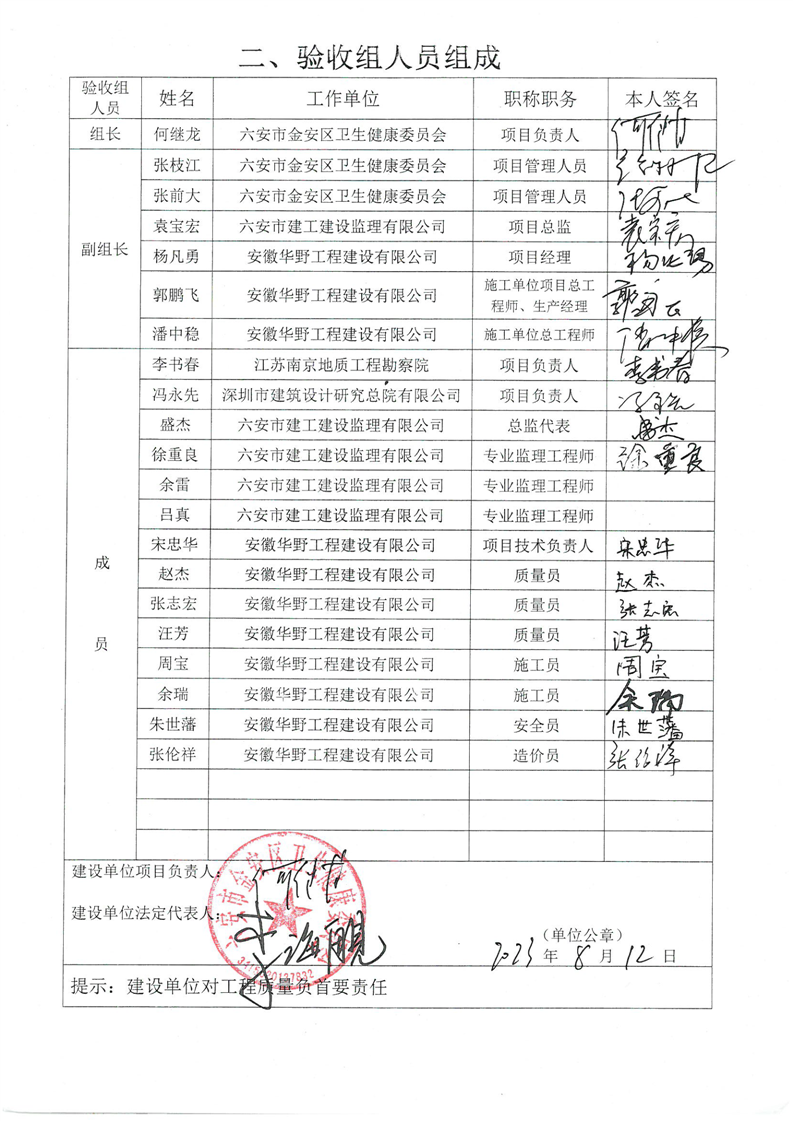 二、验收组人员组成
验收组人员 姓名 工作单位 职称职务 本人签名
组长 何继龙 六安市金安区卫生健康委员会 项目负责人
副组长 张枝江 六安市金安区卫生健康委员会 项目管理人员
张前大 六安市金安区卫生健康委员会 项目管理人员
袁宝宏 六安市建工建设监理有限公司 项目总监 袁宝宏
杨凡勇 安徽华野工程建设有限公司 项目经理
郭鹏飞 安徽华野工程建设有限公司 施工单位项目总工程师、生产经理
潘中稳 安徽华野工程建设有限公司 施工单位总工程师
成员 李书春 江苏南京地质工程勘察院 项目负责人 李书春
冯永先 深圳市建筑设计研究总院有限公司 项目负责人
盛杰 六安市建工建设监理有限公司 总监代表 盛杰
徐重良 六安市建工建设监理有限公司 专业监理工程师 徐重良
余雷 六安市建工建设监理有限公司 专业监理工程师
吕真 六安市建工建设监理有限公司 专业监理工程师
宋忠华 安徽华野工程建设有限公司 项目技术负责人 宋忠华
赵杰 安徽华野工程建设有限公司 质量员 赵杰
张志宏 安徽华野工程建设有限公司 质量员 张志宏
汪芳 安徽华野工程建设有限公司 质量员 汪芳
周宝 安徽华野工程建设有限公司 施工员 周宝
余瑞 安徽华野工程建设有限公司 施工员 余瑞
朱世藩 安徽华野工程建设有限公司 安全员 朱世藩
张伦祥 安徽华野工程建设有限公司 造价员 张伦祥
建设单位项目负责人:
建设单位法定代表人:
(单位公章)
2023 年 8 月 12 日
提示:建设单位对工程质量负首要责任